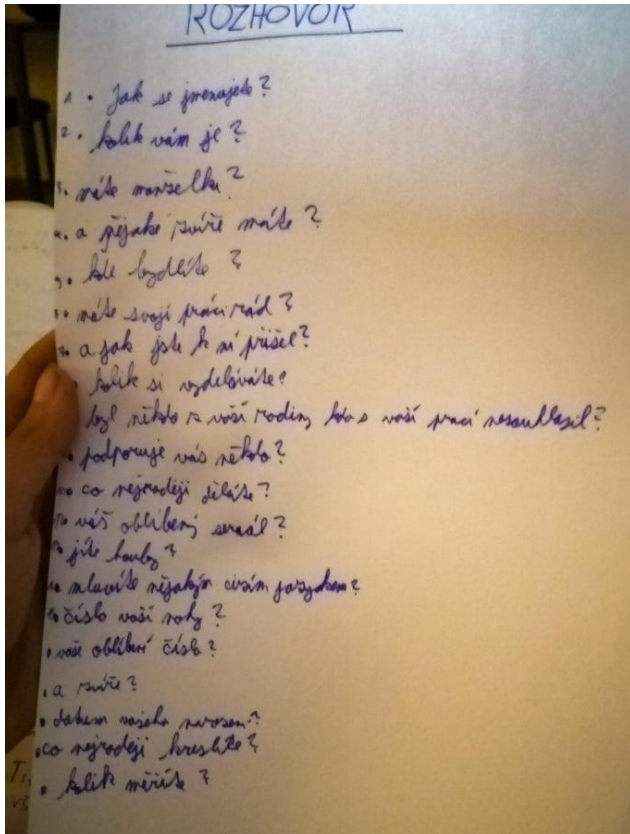 ROZHOVOR
1. Jak se jmenujete?
2. kolik vám je?
3. máte manželku?
4. a nějake zvíře máte?
5. kde bydlíte?
máte svoji práci rád?
7. a jak jste k ní přišel?
kolik si vyděláváte?
byl někdo z vaší rodiny kdo s vaší prací nesouhlasil?
podporuje vás někdo?
co nejraději děláte?
váš oblíbený seriál?
jíte houby?
mluvíte nějakým cizím jazykem?
číslo vaší nohy?
vaše oblíbené číslo?
a zvíře?
datum vašeho narozen?
co nejraději kreslíte?
kolik měříte?